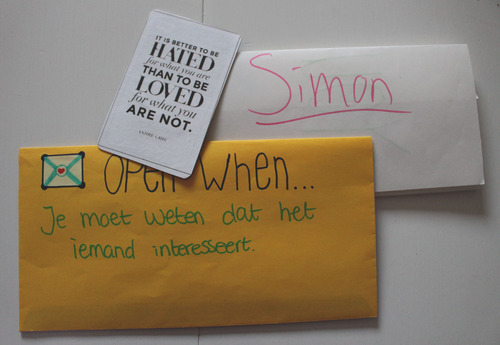 IT IS BETTER TO BE
HATED
for what you are
THAN TO BE
LOVED
for what you
ARE NOT.
ANDRE GIDE
Simon
OPEN When...
Je moet weten dat het
iemand interesseert.